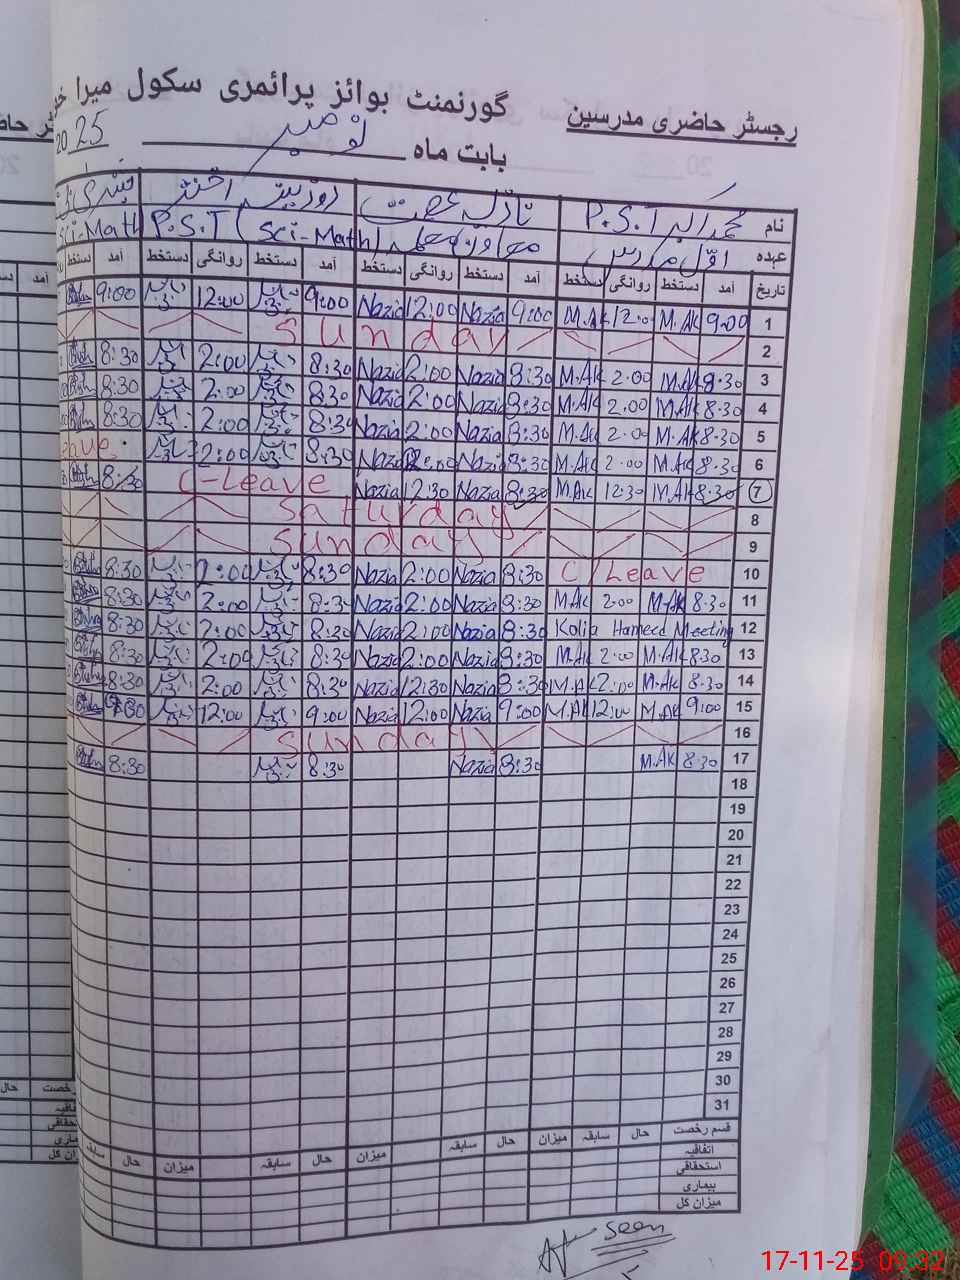 گورنمنٹ بوائز پرائمری سکول میرا
رجسٹر حاضری مدرسین
بابت ماہ نومبر 2025
نام محمد اکبر P.S.T نازلہ عصمت روزبینہ اختر
عہدہ اول مدرس معاون معلمہ P.S.T (Sci-Math) Sci-Math
تاریخ آمد دستخط روانگی دستخط آمد دستخط روانگی دستخط آمد دستخط روانگی دستخط آمد دستخط
1 9:00 M.Ak 12:00 M.Ak 9:00 Nazia 12:00 Nazia 9:00 12:00 9:00
2 Sunday
3 8:30 M.Ak 2:00 M.Ak 8:30 Nazia 2:00 Nazia 8:30 2:00 8:30
4 8:30 M.Ak 2:00 M.Ak 8:30 Nazia 2:00 Nazia 8:30 2:00 8:30
5 8:30 M.Ak 2:00 M.Ak 8:30 Nazia 2:00 Nazia 8:30 2:00 8:30
6 8:30 M.Ak 2:00 M.Ak 8:30 Nazia 2:00 Nazia 8:30 2:00 eave
7 8:30 M.Ak 12:30 M.Ak 8:30 Nazia 12:30 Nazia C-Leave 8:30
8 Saturday
9 Sunday
10 C/Leave 8:30 Nazia 2:00 Nazia 8:30 2:00 8:30
11 8:30 M.Ak 2:00 M.Ak 8:30 Nazia 2:00 Nazia 8:30 2:00 8:30
12 Kolia Hameed Meeting 8:30 Nazia 2:00 Nazia 8:30 2:00 8:30
13 8:30 M.Ak 2:00 M.Ak 8:30 Nazia 2:00 Nazia 8:30 2:00 8:30
14 8:30 M.Ak 2:00 M.Ak 8:30 Nazia 12:30 Nazia 8:30 2:00 8:30
15 9:00 M.Ak 12:00 M.Ak 9:00 Nazia 12:00 Nazia 9:00 12:00
16 Sunday
17 8:30 M.Ak 8:30 Nazia 8:30 8:30
18
19
20
21
22
23
24
25
26
27
28
29
30
31
قسم رخصت حال سابقہ میزان حال سابقہ میزان حال سابقہ میزان حال سابقہ
اتفاقیہ
استحقاقی
بیماری
میزان کل
Seen
17-11-25 09:32